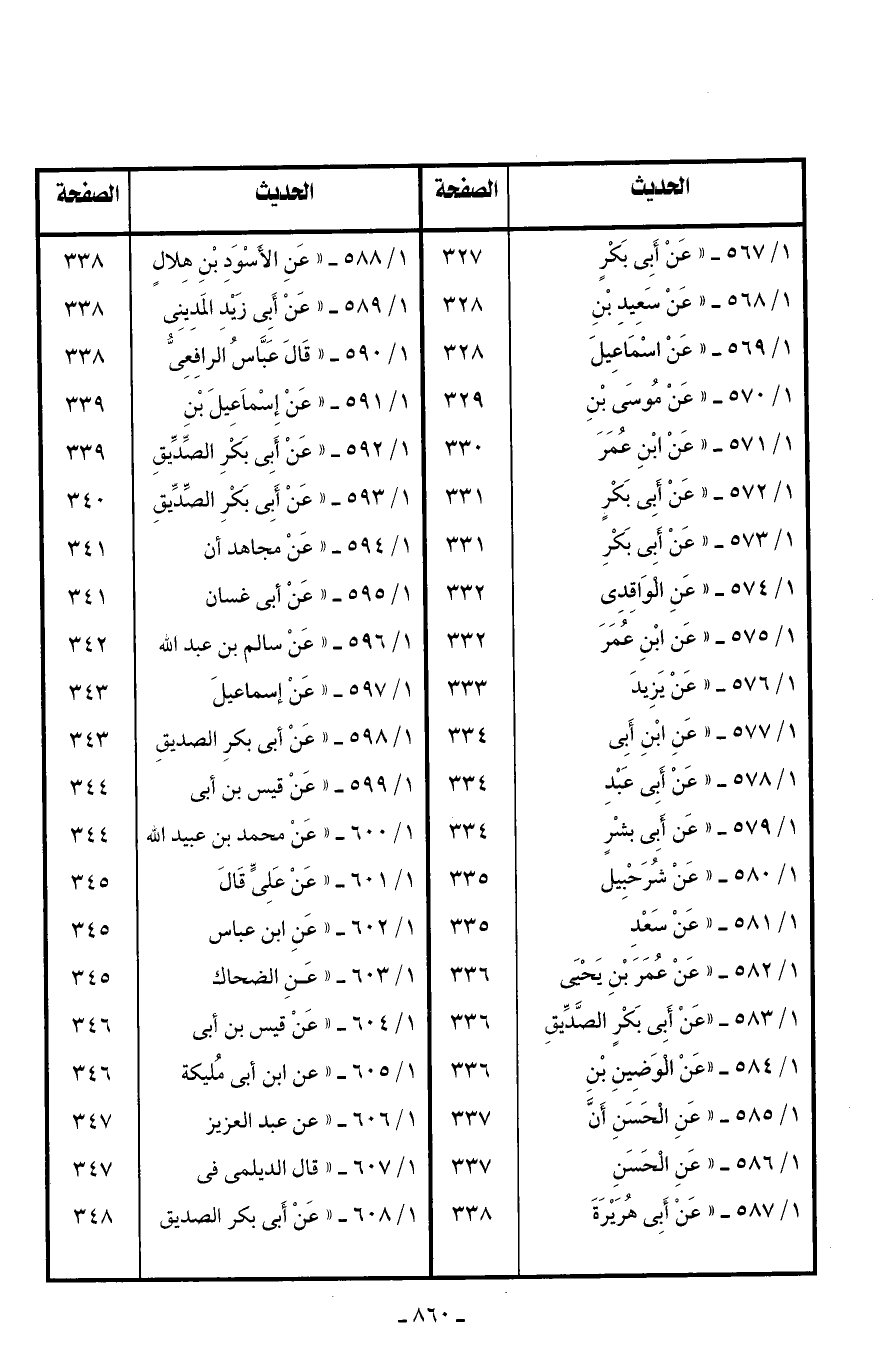 الحديث الصفحة
١/ ٥٦٧ ـ « عَنْ أَبِى بَكْرٍ ٣٢٧
١/ ٥٦٨ ـ « عَنْ سَعِيدِ بْنِ ٣٢٨
١/ ٥٦٩ ـ « عَنْ اسْمَاعِيلَ ٣٢٨
١/ ٥٧٠ ـ « عَنْ مُوسَى بْنِ ٣٢٩
١/ ٥٧١ ـ « عَنْ ابْنِ عُمَرَ ٣٣٠
١/ ٥٧٢ ـ « عَنْ أَبِى بَكْرٍ ٣٣١
١/ ٥٧٣ ـ « عَنْ أَبِى بَكْرِ ٣٣١
١/ ٥٧٤ ـ « عَنِ الْوَاقِدِى ٣٣٢
١/ ٥٧٥ ـ « عَن ابْنِ عُمَرَ ٣٣٢
١/ ٥٧٦ ـ « عَنْ يَزِيدَ ٣٣٣
١/ ٥٧٧ ـ « عَنِ ابْنِ أَبِى ٣٣٤
١/ ٥٧٨ ـ « عَنْ أَبِى عَبْدِ ٣٣٤
١/ ٥٧٩ ـ « عَن أَبِى بشْرٍ ٣٣٤
١/ ٥٨٠ ـ « عَنْ شُرَحْبِيل ٣٣٥
١/ ٥٨١ ـ « عَنْ سَعْدِ ٣٣٥
١/ ٥٨٢ ـ « عَنْ عُمَرَ بْنِ يَحْيَى ٣٣٦
١/ ٥٨٣ ـ «عَنْ أَبِى بَكْرٍ الصِّدِّيقِ ٣٣٦
١/ ٥٨٤ ـ «عَنْ الْوَضِينِ بْنِ ٣٣٦
١/ ٥٨٥ ـ « عَنِ الْحَسَنِ أَنَّ ٣٣٧
١/ ٥٨٦ ـ « عَنِ الْحَسَنِ ٣٣٧
١/ ٥٨٧ ـ « عَنْ أَبِى هُرَيْرَةَ ٣٣٨
الحديث الصفحة
١/ ٥٨٨ ـ « عَنِ الأَسْوَدِ بْنِ هِلالٍ ٣٣٨
١/ ٥٨٩ ـ « عَنْ أَبِى زَيْدِ المَدِينِى ٣٣٨
١/ ٥٩٠ ـ « قَالَ عَبَّاسُ الرافِعِىُّ ٣٣٨
١/ ٥٩١ ـ « عَنْ إِسْمَاعِيلَ بْنِ ٣٣٩
١/ ٥٩٢ ـ « عَنْ أَبِى بَكْرِ الصِّدِّيقِ ٣٣٩
١/ ٥٩٣ ـ « عَنْ أَبِى بَكْرِ الصِّدِّيقِ ٣٤٠
١/ ٥٩٤ ـ « عَنْ مجاهد أن ٣٤١
١/ ٥٩٥ ـ « عَنْ أبى غسان ٣٤١
١/ ٥٩٦ ـ « عَنْ سالم بن عبد الله ٣٤٢
١/ ٥٩٧ ـ « عَنْ إسماعيلَ ٣٤٣
١/ ٥٩٨ ـ « عَنْ أبى بكرِ الصديقِ ٣٤٣
١/ ٥٩٩ ـ « عَنْ قيس بن أبى ٣٤٤
١/ ٦٠٠ ـ « عَنْ محمد بن عبيد الله ٣٤٤
١/ ٦٠١ ـ « عَنْ عَلِىٍّ قَالَ ٣٤٥
١/ ٦٠٢ ـ « عَنِ ابن عباس ٣٤٥
١/ ٦٠٣ ـ « عَـنِ الضحاك ٣٤٥
١/ ٦٠٤ ـ « عَنْ قيس بن أبى ٣٤٦
١/ ٦٠٥ ـ « عن ابن أبى مُليكة ٣٤٦
١/ ٦٠٦ ـ « عن عبد العزيز ٣٤٧
١/ ٦٠٧ ـ « قال الديلمى فى ٣٤٧
١/ ٦٠٨ ـ « عَنْ أَبى بكر الصديق ٣٤٨
ـ ٨٦٠ ـ